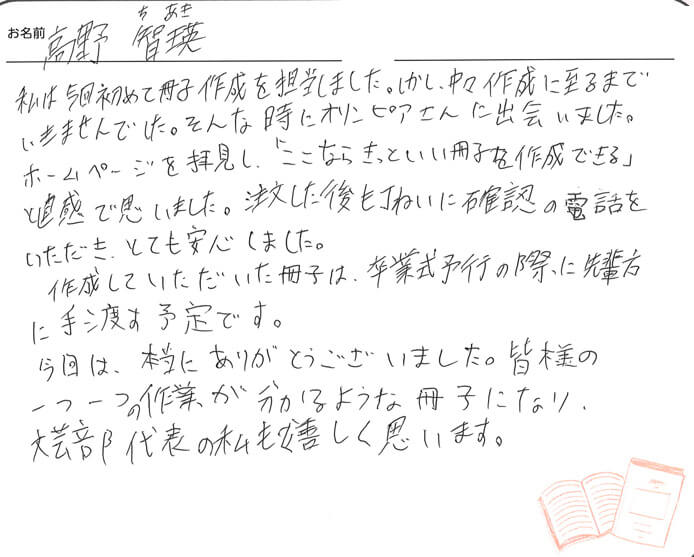 ち あき
お名前 高野 智瑛
私は今回初めて冊子作成を担当しました。しかし、中々作成に至るまで
いきませんでした。そんな時にオリンピアさんに出会いました。
ホームページを拝見し、「ここならきっといい冊子を作成できる」
と直感で思いました。注文した後も丁ねいに確認の電話を
いただき、とても安心しました。
作成していただいた冊子は、卒業式予行の際に先輩方
に手渡す予定です。
今回は、本当にありがとうございました。皆様の
一つ一つの作業が分かるような冊子になり、
文芸部代表の私も嬉しく思います。